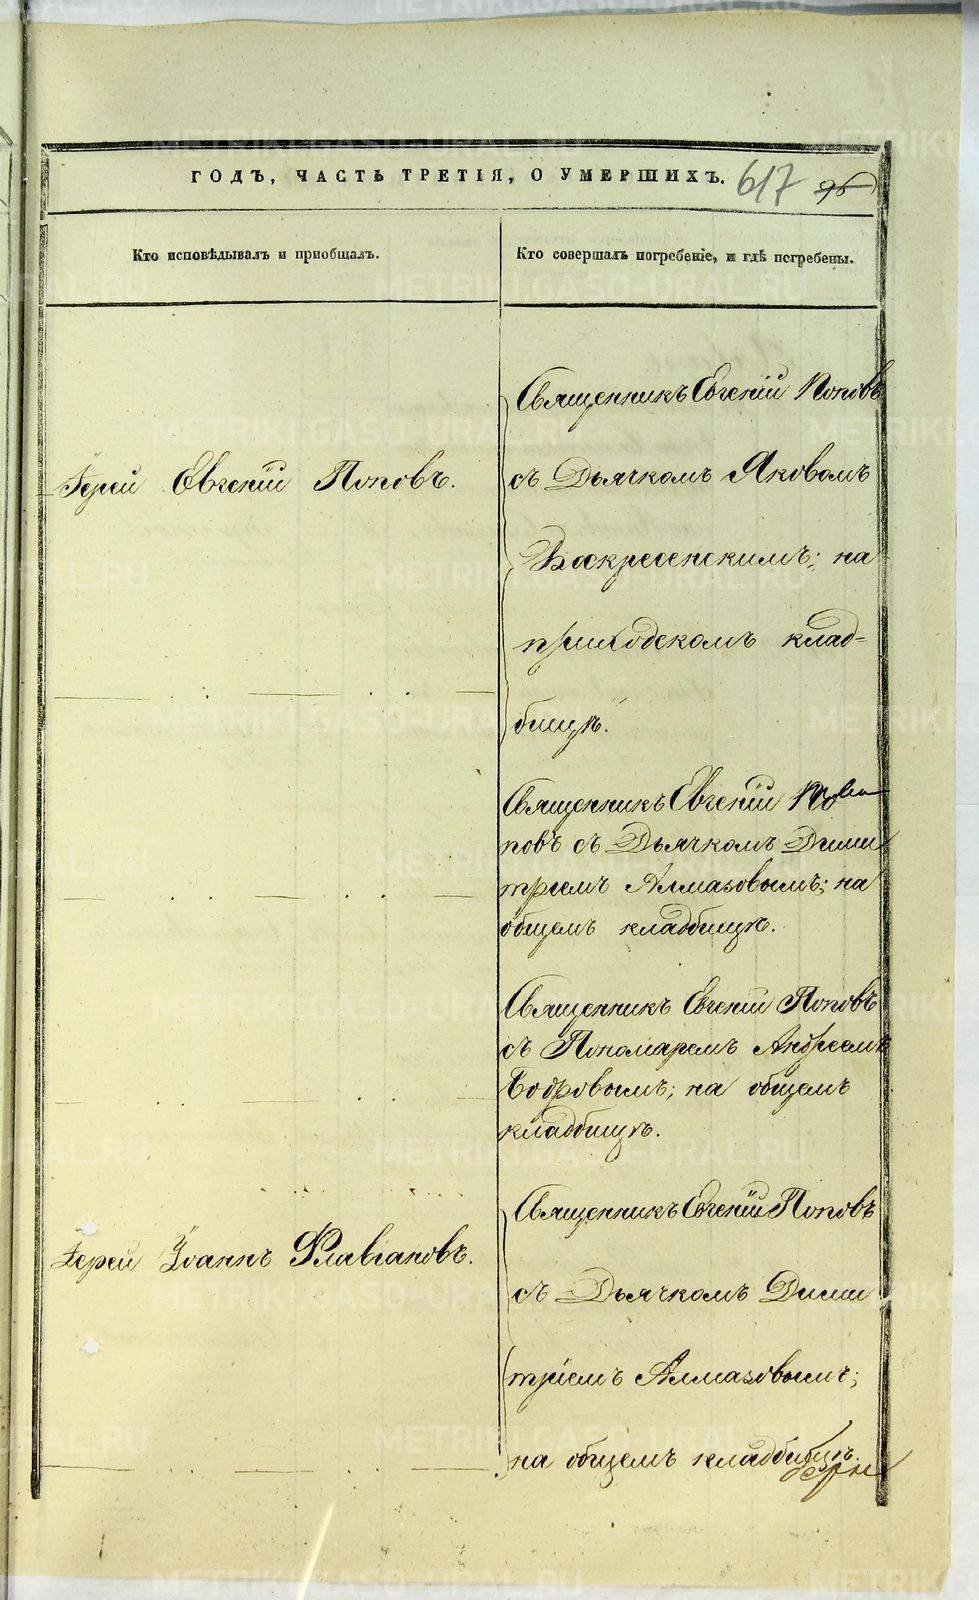 ГОДЪ, ЧАСТЬ ТРЕТІЯ, О УМЕРШИХЪ. 617 96
Кто исповѣдывалъ и пріобщалъ.
Кто совершалъ погребеніе, и гдѣ погребены.
Іерей Евгеній Поповъ.
Священникъ Евгеній Поповъ
съ Дьячкомъ Яковомъ
Воскресенскимъ; на
приходскомъ клад-
бищѣ.
Священникъ Евгеній По
повъ съ Дьячкомъ Дими
тріемъ Алмазовымъ; на
общемъ кладбищѣ.
Священникъ Евгеній Поповъ
съ Пономаремъ Андреемъ
Бодровымъ; на общемъ
кладбищѣ.
Іерей Іоаннъ Флавіановъ.
Священникъ Евгеній Поповъ
съ Дьячкомъ Дими
тріемъ Алмазовымъ;
на общемъ кладбищѣ.
METRIKI.GASO-URAL.RU